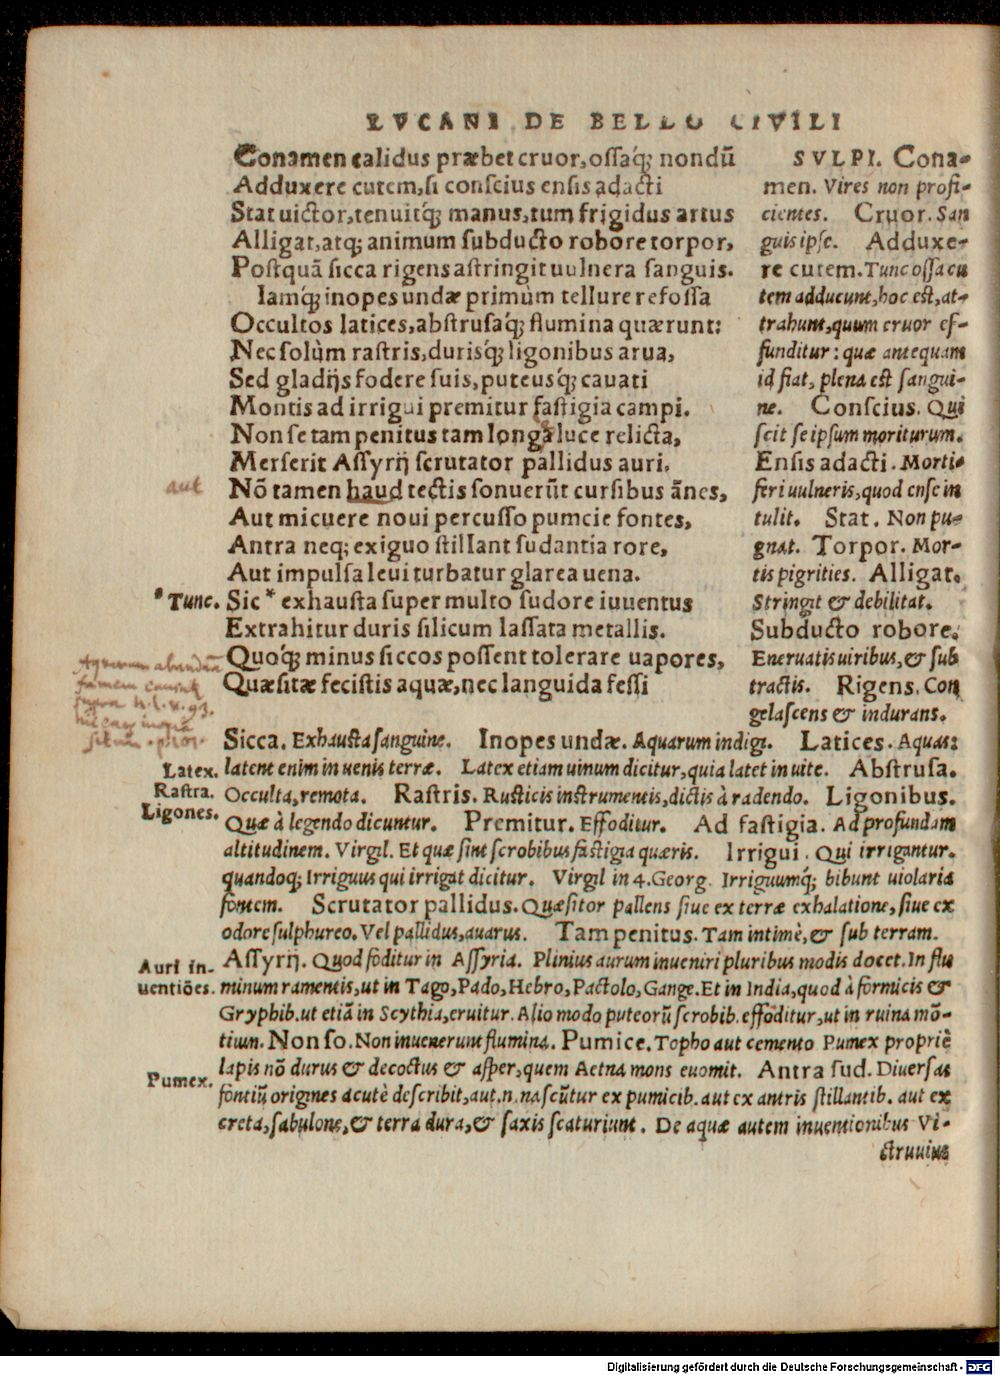 LVCANI DE BELLO CIVILI
Conamen calidus præbet cruor, ossaq́; nondū
Adduxere cutem, si conscius ensis adacti
Stat uictor, tenuitq́; manus, tum frigidus artus
Alligat, atq; animum subducto robore torpor,
Postquā sicca rigens astringit uulnera sanguis.
Iamq́; inopes undæ primùm tellure refossa
Occultos latices, abstrusaq́; flumina quærunt:
Nec solùm rastris, durisq́; ligonibus arua,
Sed gladijs fodere suis, puteusq́; cauati
Montis ad irrigui premitur fastigia campi.
Non se tam penitus tam longa luce relicta,
Merserit Assyrij scrutator pallidus auri.
aut
Nō tamen haud tectis sonuerūt cursibus ānes,
Aut micuere noui percusso pumcie fontes,
Antra neq; exiguo stillant sudantia rore,
Aut impulsa leui turbatur glarea uena.
* Tunc. Sic * exhausta super multo sudore iuuentus
Extrahitur duris silicum lassata metallis.
Quoq́; minus siccos possent tolerare uapores,
Quæsitæ fecistis aquæ, nec languida fessi
SVLPI. Cona-
men. Vires non profi-
cientes. Cruor. San
guis ipse. Adduxe-
re cutem. Tunc ossa cu
tem adducunt, hoc est, at-
trahunt, quum cruor ef-
funditur: quæ antequam
id fiat, plena est sangui-
ne. Conscius. Qui
scit se ipsum moriturum.
Ensis adacti. Morti-
feri uulneris, quod ense in
tulit. Stat. Non pu-
gnat. Torpor. Mor-
tis pigrities. Alligat.
Stringit & debilitat.
Subducto robore.
Eneruatis uiribus, & sub
tractis. Rigens. Con
gelascens & indurans.
supra h. l. v. 93.
Sicca. Exhausta sanguine. Inopes undæ. Aquarum indigi. Latices. Aquas:
Latex. latent enim in uenis terræ. Latex etiam uinum dicitur, quia latet in uite. Abstrusa.
Rastra. Occulta, remota. Rastris. Rusticis instrumentis, dictis à radendo. Ligonibus.
Ligones. Quæ à legendo dicuntur. Premitur. Effoditur. Ad fastigia. Ad profundam
altitudinem. Virgil. Et quæ sint scrobibus fastigia quæris. Irrigui. Qui irrigantur.
quandoq; Irriguus qui irrigat dicitur. Virgil in 4. Georg. Irriguumq́; bibunt uiolaria
fontem. Scrutator pallidus. Quæsitor pallens siue ex terræ exhalatione, siue ex
odore sulphureo. Vel pallidus, auarus. Tam penitus. Tam intimè, & sub terram.
Auri in- Assyrij. Quod foditur in Assyria. Plinius aurum inueniri pluribus modis docet. In flu
uentiões. minum ramentis, ut in Tago, Pado, Hebro, Pactolo, Gange. Et in India, quod à formicis &
Gryphib. ut etiā in Scythia, eruitur. Alio modo puteorū scrobib. effoditur, ut in ruina mō-
tium. Non so. Non inuenerunt flumina. Pumice. Topho aut cemento Pumex propriè
Pumex. lapis nō durus & decoctus & asper, quem Aetna mons euomit. Antra sud. Diuersas
fontiū origines acutè describit, aut. n. nascūtur ex pumicib. aut ex antris stillantib. aut ex
creta, sabulone, & terra dura, & saxis scaturiunt. De aquæ autem inuentionibus Vi-
ctruuius
Digitalisierung gefördert durch die Deutsche Forschungsgemeinschaft - DFG